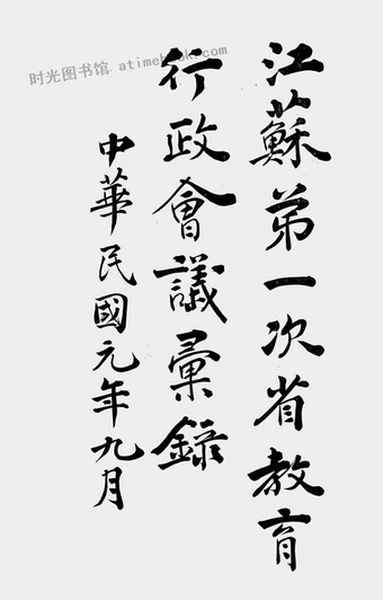 江蘇第一次省教育
行政會議彙錄
中華民國元年九月
时光图书馆 atimebook.com